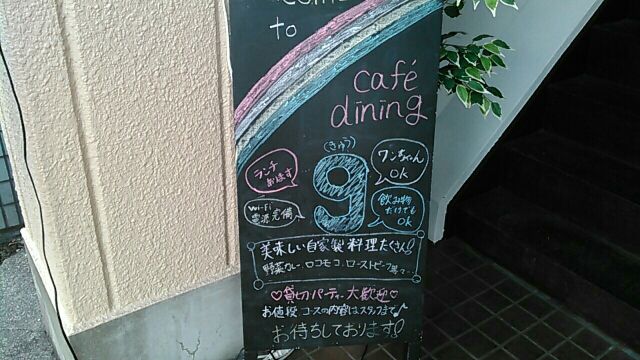 to
café
dining
(きゅう)
9
ランチ
あります
ワンちゃん
OK
Wi-Fi
電源完備
飲み物
だけでも
OK
美味しい自家製料理たくさん!
野菜カレー、ロコモコ、ローストビーフ丼 で…
♡貸切パーティー大歓迎♡
お値段 コースの内容はスタッフまで♪
お待ちしております!